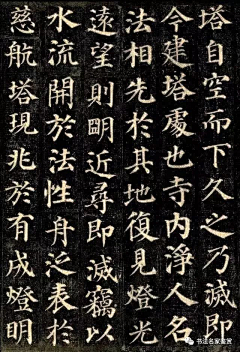 塔自空而下久之乃滅即
今建塔處也寺内淨人名
法相先於其地復見燈光
遠望則明近尋即滅竊以
水流開於法性舟泛表於
慈航塔現兆於有成燈明
书法名家鉴赏